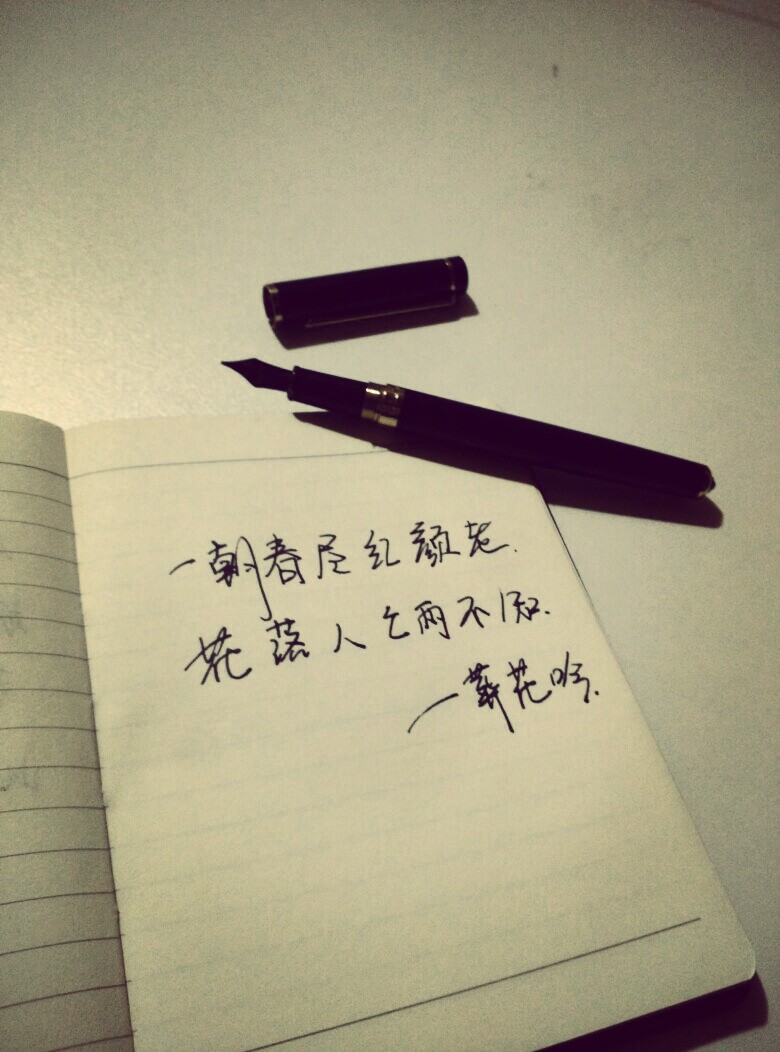 一朝春尽红颜老.
花落人亡两不知.
—葬花吟.